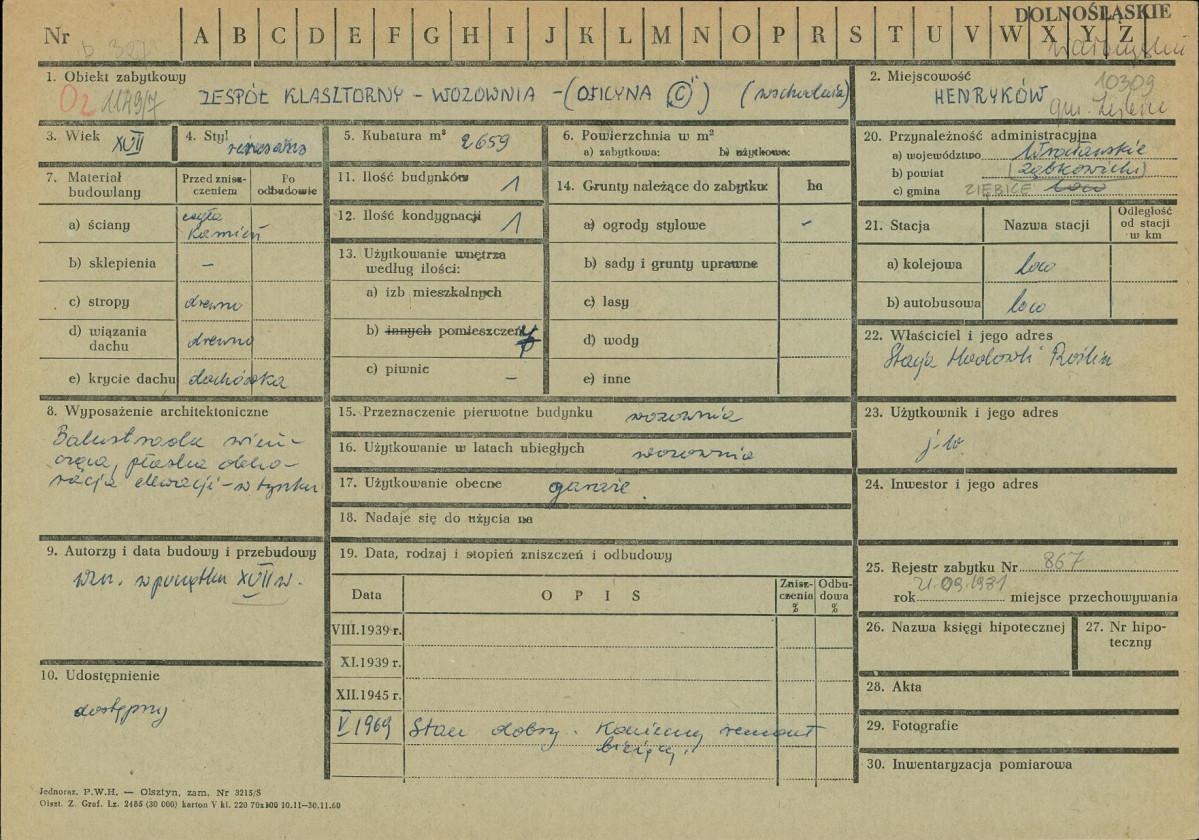 DOLNOŚLĄSKIE
Nr A B C D E F G H I J K L M N O P R S T U V W X Y Z
1. Obiekt zabytkowy
ZESPÓŁ KLASZTORNY - WOZOWNIA - (OFICYNA "C") (wschodnia)
2. Miejscowość
10309
HENRYKÓW
gm. Ziębice
3. Wiek XVII
4. Styl renesans
5. Kubatura m³ 2659
6. Powierzchnia w m²
a) zabytkowa: b) użytkowa:
7. Materiał budowlany
Przed zniszczeniem
Po odbudowie
a) ściany cegła kamień
b) sklepienia –
c) stropy drewno
d) wiązania dachu drewno
e) krycie dachu dachówka
8. Wyposażenie architektoniczne
Balustrada wień-
cząca, płaska deko-
racja elewacji - w tynku
9. Autorzy i data budowy i przebudowy
wzn. w początku XVII w.
10. Udostępnienie
dostępny
11. Ilość budynków 1
12. Ilość kondygnacji 1
13. Użytkowanie wnętrza
według ilości:
a) izb mieszkalnych
b) innych pomieszczeń
c) piwnic –
14. Grunty należące do zabytku: ha
a) ogrody stylowe –
b) sady i grunty uprawne
c) lasy
d) wody
e) inne
15. Przeznaczenie pierwotne budynku wozownia
16. Użytkowanie w latach ubiegłych wozownia
17. Użytkowanie obecne garaże.
18. Nadaje się do użycia na
19. Data, rodzaj i stopień zniszczeń i odbudowy
Data O P I S Zniszczenia % Odbudowa %
VIII.1939 r.
XI.1939 r.
XII.1945 r.
V 1969 Stan dobry. Konieczny remont
bieżący.
20. Przynależność administracyjna
a) województwo Wrocławskie
b) powiat (ząbkowicki)
c) gmina ZIĘBICE loco
21. Stacja Nazwa stacji Odległość od stacji w km
a) kolejowa loco
b) autobusowa loco
22. Właściciel i jego adres
Stacja Hodowli Roślin
23. Użytkownik i jego adres
j.w.
24. Inwestor i jego adres
25. Rejestr zabytku Nr 867
rok 21.09.1981 miejsce przechowywania
26. Nazwa księgi hipotecznej
27. Nr hipoteczny
28. Akta
29. Fotografie
30. Inwentaryzacja pomiarowa
Jednoraz. P.W.H. — Olsztyn, zam. Nr 3215/S
Olszt. Z. Graf. Lz. 2485 (30 000) karton V kl. 220 70x100 10.11—30.11.60